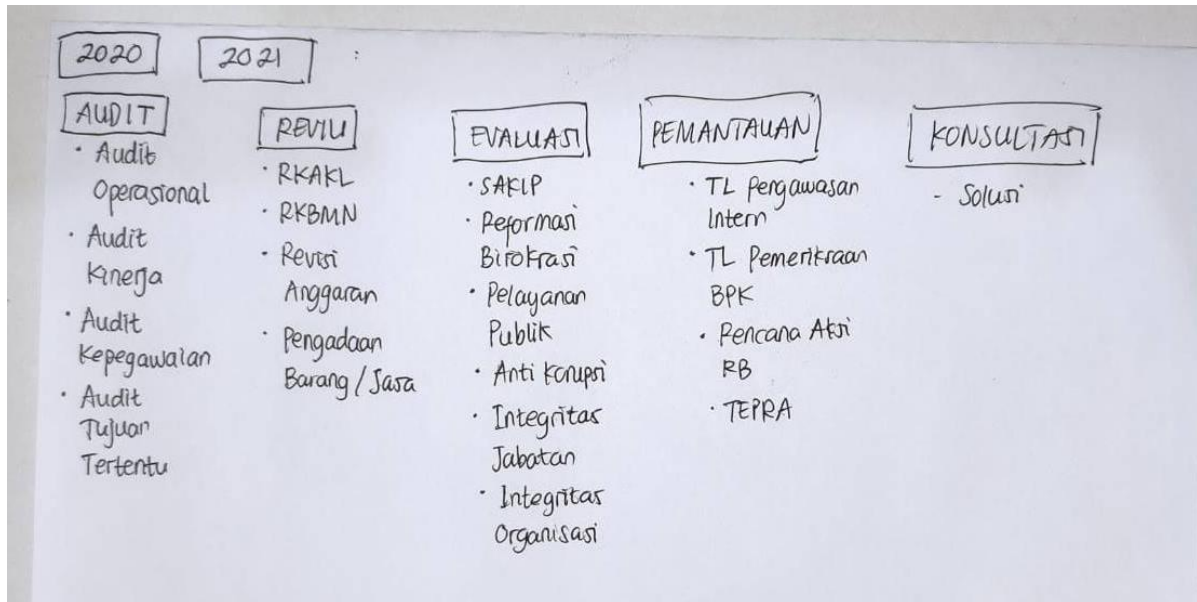 2020 2021 :
AUDIT
• Audit
Operasional
• Audit
Kinerja
• Audit
Kepegawaian
• Audit
Tujuan
Tertentu
REVIU
• RKAKL
• RKBMN
• Revisi
Anggaran
• Pengadaan
Barang / Jasa
EVALUASI
• SAKIP
• Reformasi
Birokrasi
• Pelayanan
Publik
• Anti Korupsi
• Integritas
Jabatan
• Integritas
Organisasi
PEMANTAUAN
• TL Pengawasan
Intern
• TL Pemeriksaan
BPK
• Rencana Aksi
RB
• TEPRA
KONSULTASI
- Solusi